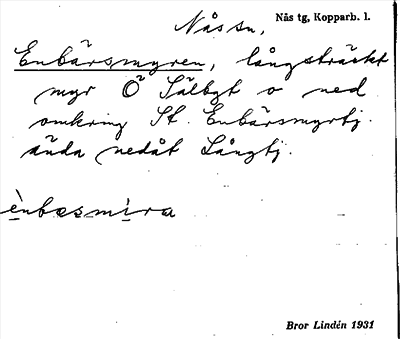 Nås sn,
Nås tg, Kopparb. l.
Enbärsmyren, långsträckt
myr Ö Sälbgt o ned
omkring St. Enbärsmyrtj.
ända nedåt Långtj.
ènbæsmìra
Bror Lindén 1931